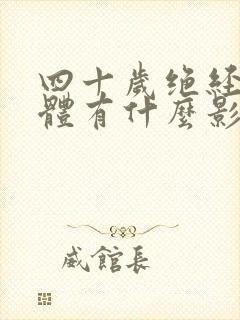 四十歲绝经
體有什麼影
威館長